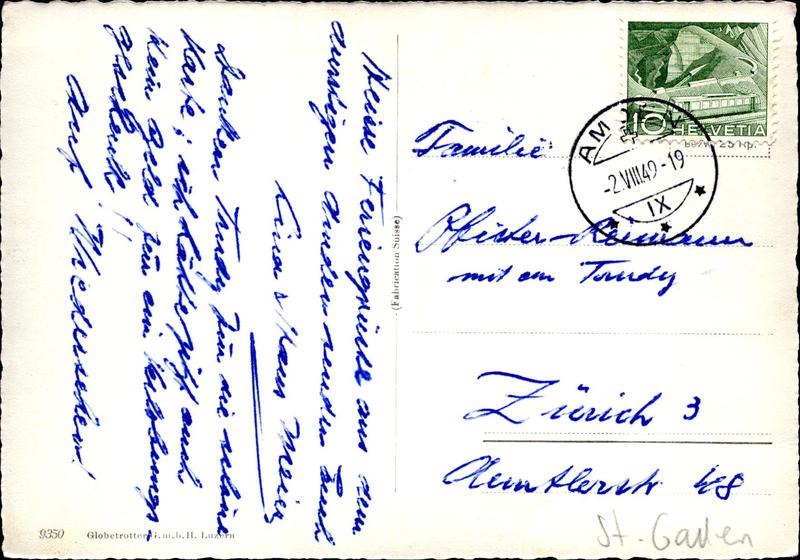 Heisse Feriengrüsse aus dem
durstigen Andern senden Euch
Lina & Hans Meier
Danken Trudy für die schöne
Karte; ich hätte jetzt auch
kein Geld für ein
geschenk!
Auf Wiedersehen!
(Fabrication Suisse)
9350 Globetrotter G.m.b.H. Luzern
10 HELVETIA
AMDEN
-2.VIII.49-19
IX
Familie
Pfister-Reimann
mit Trudy
Zürich 3
Aemtlerstr 48
St. Gallen